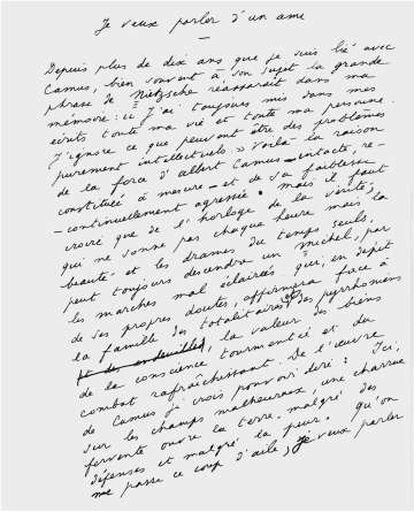 Je veux parler d'un ami
—
Depuis plus de dix ans que je suis lié avec
Camus, bien souvent à son sujet la grande
phrase de Nietzsche réapparaît dans ma
mémoire : "J'ai toujours mis dans mes
écrits toute ma vie et toute ma personne.
J'ignore ce que peuvent être des problèmes
purement intellectuels." Voilà la raison
de la force d'Albert Camus — intacte, re-
constituée à mesure — et de sa faiblesse
— continuellement agressée. Mais il faut
croire que de l'horloge de la vérité,
qui ne sonne pas chaque heure mais la
beauté et les drames du temps seuls,
peut toujours descendre un Michel, par
les marches mal éclairées qui, en dépit
de ses propres doutes, affirmera face à
la famille des totalitaires et des pyrrhoniens
, la valeur des biens
de la conscience tourmentée et du
combat rafraîchissant. De l'œuvre
de Camus je crois pouvoir dire : Ici,
sur les champs malheureux, une charrue
fervente ouvre la terre, malgré les
défenses et malgré la peur. Qu'on
me passe ce coup d'aile, je veux parler